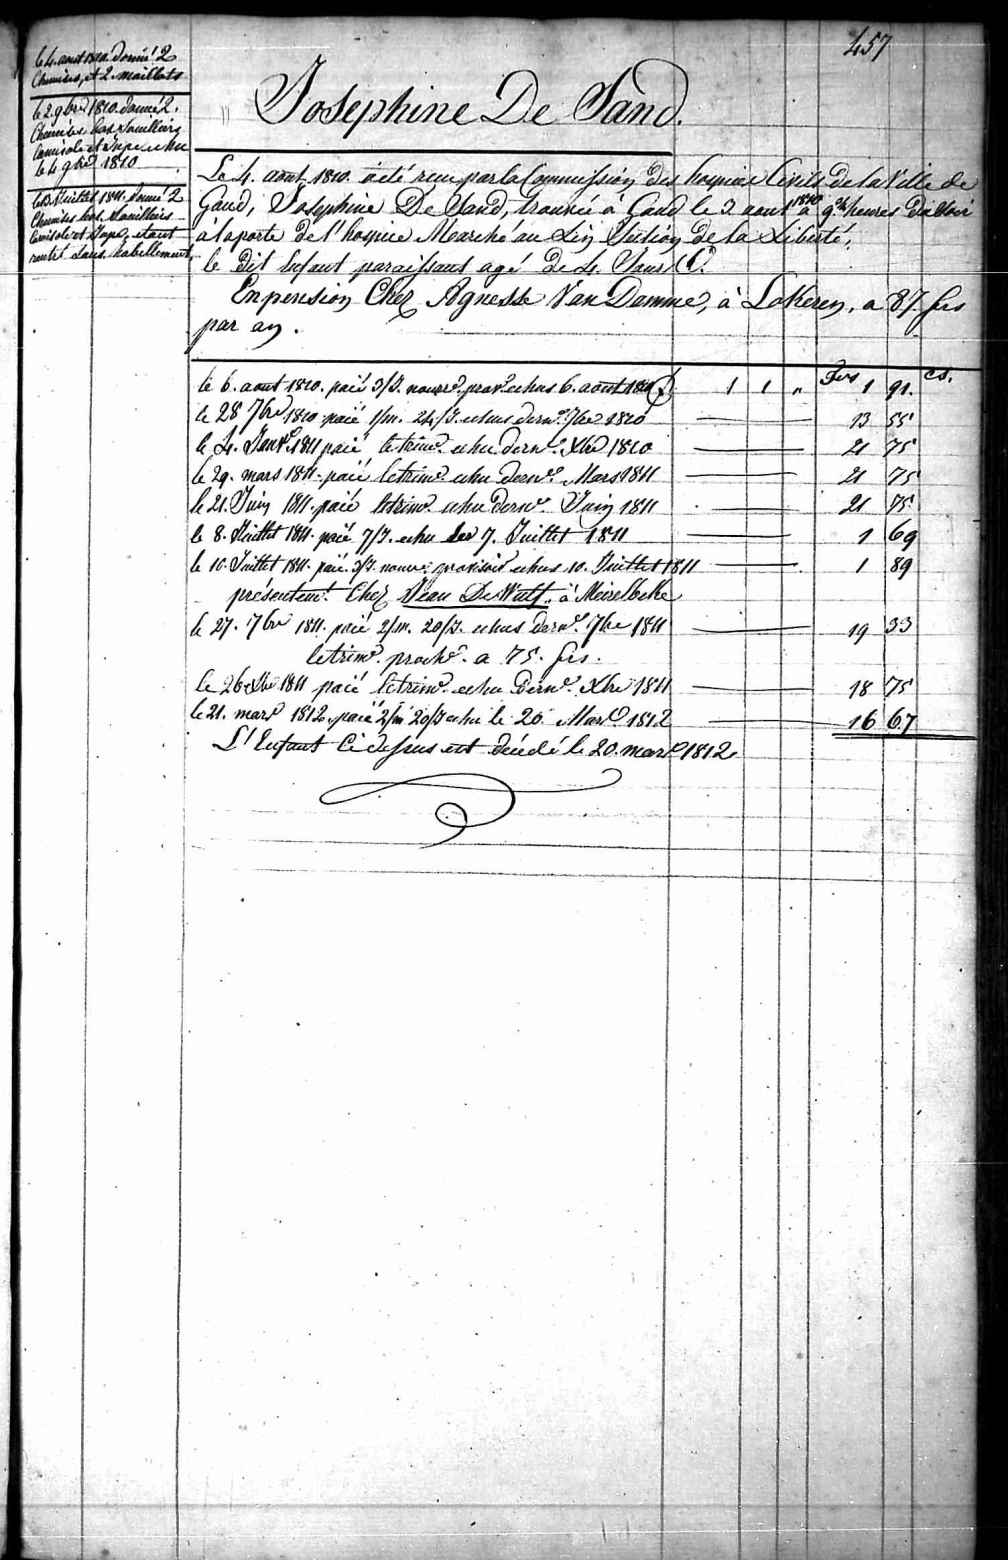 457
le 4. aout 1810. donné 2
Chemises, et 2. maillots
le 2 9bre 1810. donné 2.
Chemises bas Souilliers
Camisole et Jupe echu
le 4 9bre 1810
Juillet 1811. donné 2
Chemises bas Souilliers
Camisole et Jupe, etant
rentré sans habillement
Josephine De Sand.
Le 4. aout 1810. a été recu par la Commission des hospices Civils de la Ville de
Gand, Josephine De Sand, trouvée à Gand le 3 aout 1810 à 9 heures du Soir
à la porte de l'hospice Marché au Lin Section de la Liberté,
le dit Enfant paraissant agé de 4. Jours
En pension Chez Agnesse Van Damme, à Lokeren, a 87. frs
par an.
Frs cs.
le 6. aout 1810. paié 3/J. nourre. prove. echus 6. aout 1810 1 1 " 1 91.
le 28 7bre 1810 paié 1/m. 24/J. echus derne. 7bre 1810 13 55
le 4. Janvr. 1811 paié le trime. echu derne. Xbre 1810 21 75
le 29. mars 1811. paié le trime. echu derne. Mars 1811 21 75
le 21. Juin 1811. paié le trime. echu derne. Juin 1811 21 75
le 8. Juillet 1811. paié 7/J. echu les 7. Juillet 1811 1 69
le 10. Juillet 1811. paié 3/J. nourr: provisoire echus 10. Juillet 1811 1 89
présentemt. Chez Jean De Wulf. à Meirelbeke
le 27. 7bre 1811. paié 2/m. 20/J. echus derne. 7bre 1811 19 33
le trime. proche. a 75. frs.
le 26 Xbre 1811 paié le trime. echu Derne. Xbre 1811 18 75
le 21. mars 1812. paié 2/m 20/J echu le 20. Mars 1812 16 67
L'Enfant Ci dessus est décédé le 20. mars 1812